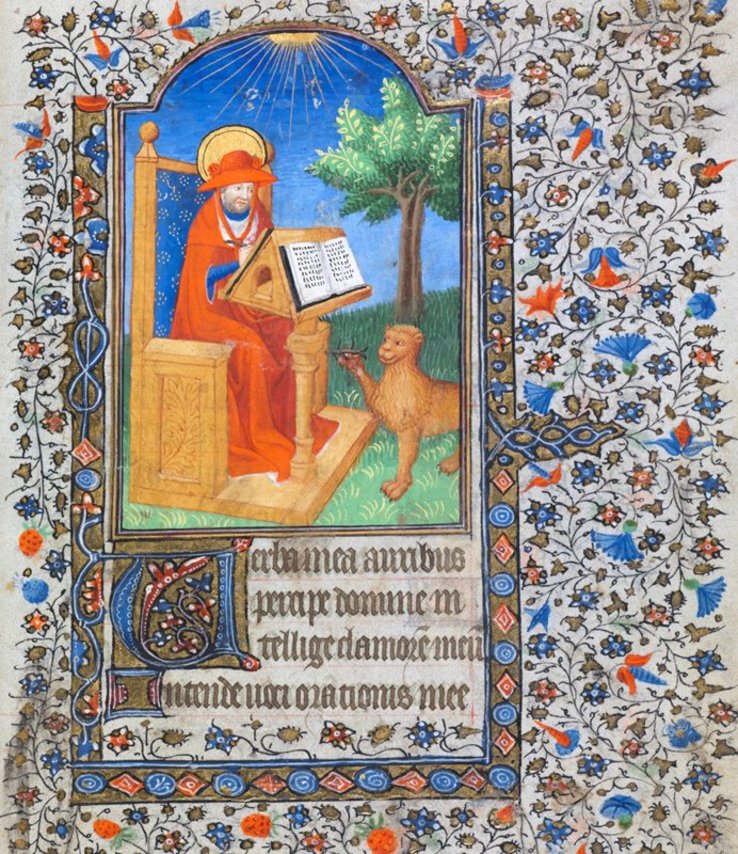 Verba mea auribus
percipe domine in
tellige clamorē meū
Intende uoci orationis mee